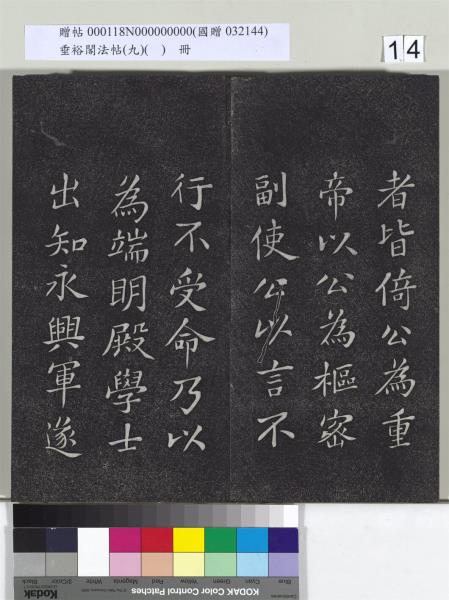 贈帖 000118N000000000(國贈 032144)
垂裕閣法帖(九)( ) 冊
14
者皆倚公為重
帝以公為樞密
副使公以言不
行不受命乃以
為端明殿學士
出知永興軍遂
Blue Cyan Green Yellow Red Magenta White 3/Color Black
Kodak
KODAK Color Control Patches